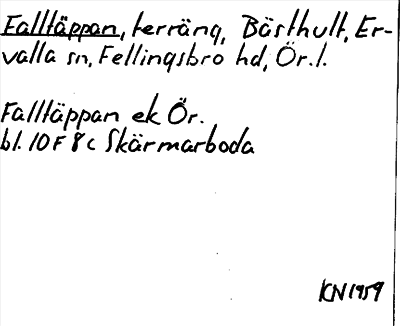 Falltäppan, terräng, Bösthult, Er-
valla sn, Fellingsbro hd, Ör. l.
Falltäppan ek Ör.
bl. 10 F 8 c Skärmarboda
KN 1959